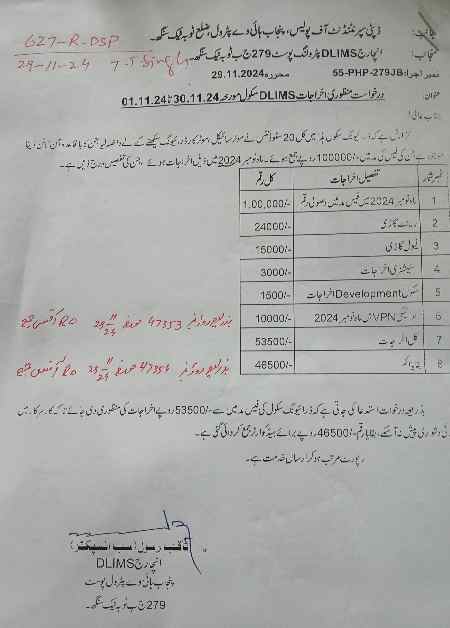 627-R-DSP
29-11-24
بخدمت: ڈپٹی سپرنٹنڈنٹ آف پولیس، پنجاب ہائی وے پٹرول، ضلع ٹوبہ ٹیک سنگھ۔
منجانب: انچارج DLIMS پٹرولنگ پوسٹ 279 ج ب ٹوبہ ٹیک سنگھ۔
نمبر اجراء: 55-PHP-279JB محررہ 29.11.2024
عنوان: درخواست منظوری اخراجات DLIMS سکول مورخہ 01.11.24 تا 30.11.24
جناب عالی!
گزارش ہے کہ ڈرائیونگ سکول ہذا میں کل 20 سٹوڈنٹس نے موٹر سائیکل، موٹر کار ڈرائیونگ سیکھنے کے لیے داخلہ لیا جن کا باقاعدہ آن لائن ڈیٹا
موجود ہے جن کی فیس کی مد میں -/100000 روپے جمع ہوئے۔ ماہ نومبر 2024 میں ذیل اخراجات ہوئے، جس کی تفصیل درج ذیل ہے۔
نمبر شمار تفصیل اخراجات کل رقم
1 ماہ نومبر 2024 میں فیس مد میں وصولی رقم 1,00,000/-
2 رینٹ گاڑی 24000/-
3 فیول گاڑی 15000/-
4 سٹیشنری اخراجات 3000/-
5 سکول Development اخراجات 1500/-
6 VPN ماہ نومبر 2024 10000/-
7 کل اخراجات 53500/-
8 بقایا 46500/-
47353
47354
بذریعہ درخواست استدعا کی جاتی ہے کہ ڈرائیونگ سکول کی فیس مد میں سے -/53500 روپے اخراجات کی منظوری دی جائے تاکہ کار سرکار میں
کوئی دشواری پیش نہ آسکے، بقایا رقم -/46500 روپے برائے ہیڈ کوارٹر جمع کروائی گئی ہے۔
رپورٹ مرتب ہو کر ارسال خدمت ہے۔
ثاقب رسول (سب انسپکٹر)
انچارج DLIMS
پنجاب ہائی وے پٹرول پوسٹ
279 ج ب ٹوبہ ٹیک سنگھ۔